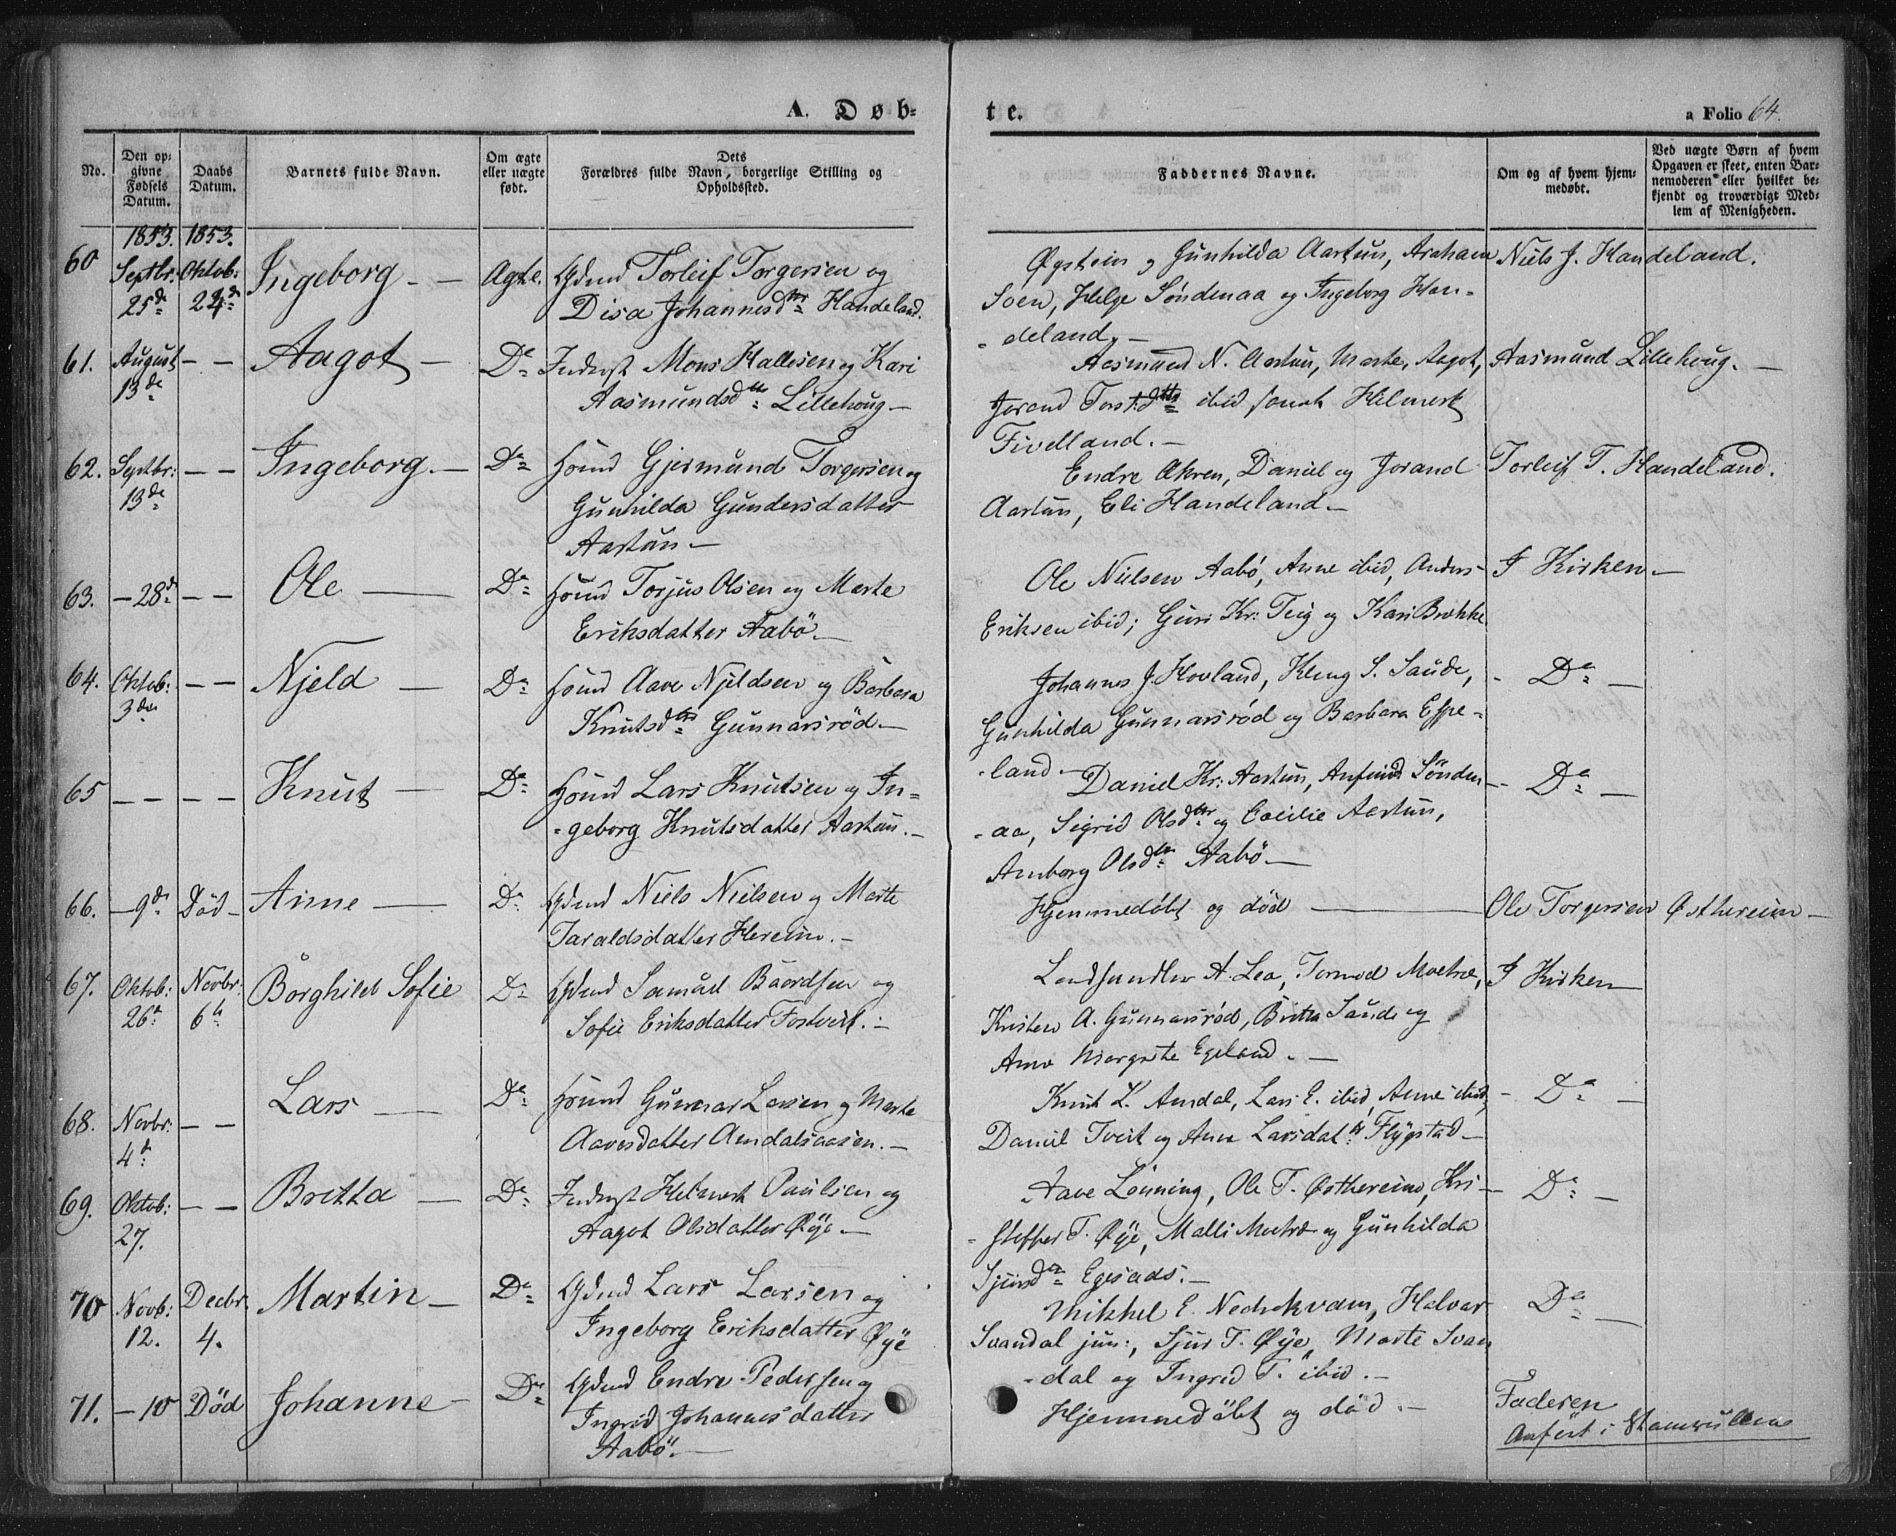 A. Døb=
te.
a Folio 64.
No.
Den op=
givne
Fødsels
Datum.
Daabs
Datum.
Barnets fulde Navn.
Om ægte
eller uægte
født.
Dets
Forældres fulde Navn, borgerlige Stilling og
Opholdssted.
Faddernes Navne.
Om og af hvem hjem=
medøbt.
Ved uægte Børn af hvem
Opgaven er skeet, enten Bar=
nemoderen eller hvilket be=
kjendt og troværdigt Med=
lem af Menigheden.
1853. 1853.
60 Septbr: 25de Oktob: 24de Ingeborg - Ægte. Gdmd Torleif Torgersen og
Disa Johannesdtr Handeland.
Øystein og Gunhilda Aartun,
Soen, Helge Søndenaa og Ingeborg Han-
-deland,-
Niels J. Handeland.
61. August 13de - - Aagot - Do Inderst Mons Hallesen og Kari
Aasmundsdtr Lillehoug -
Aasmund N. Aartun, Marte, Aagot,
Jorand Torstdtr ibid samt Helmert
Fivelland. -
Aasmund Lillehoug. -
62. Septbr: 13de - - Ingeborg. - Do Hsmd Gjermund Torgersen og
Gunhilda Gundersdatter
Aartun -
Endre Ohren, Daniel og Jorand
Aartun, Eli Handeland. -
Torleif T. Handeland.
63. - 28de - - Ole - Do Hsmd Torjus Olsen og Marte
Eriksdatter Aabö. -
Ole Nielsen Aabö, Anne ibid, Anders
Eriksen ibid; Guri Kr: Teig og Kari Brokke
I Kirken -
64. Oktob: 3die - - Njeld - Do Hsmd Aave Njeldsen og Barbara
Knutsdtr Gunnarsröd -
Johannes J. Hovland, Kleng S. Saude,
Gunhilda Gunnarsröd og Barbara Espe-
-land -
- Do -
65 - - - - Knut - Do Hsmd Lars Knutsen og In-
-geborg Knutsdatter Aartun. -
Daniel Kr: Aartun, Anfind Sönden-
-aa, Sigrid Olsdtr og Cecilie Aartun,
Amborg Olsdtr Aabö -
- Do -
66. - 9de Död - Anne - Do Gdmd Niels Nielsen og Marte
Taraldsdatter Hereim. -
Hjemmedöbt og död -
Ole Torgersen Østhereim -
67. Oktob: 26de Novbr: 6te Börghild Sofie Do Gdmd Samuel Baardsen og
Sofie Eriksdatter Fosteveit. -
Landhandler A. Lea, Tormod Moetræ,
Kristen A. Gunnarsröd, Britta Saude og
Ane Margrete Egeland. -
I Kirken
68. Novbr: 4de - - Lars - Do Hsmd Gunnar Larsen og Marte
Aavesdatter Amdalsaasen. -
Knut L. Amdal, Lars E. ibid, Anne ibid,
Daniel Tveit og Ane Larsdatr Flÿgstad -
- Do -
69. Oktob: 27. - - Britta - Do Inderst Helmert Paulsen og
Aagot Olsdatter Øÿe -
Aave Lönning, Ole T. Østhereim, Kri-
-stoffer T. Øÿe, Malli Moetræ og Gunhilda
Sjursdtr Egesads. -
- Do -
70 Novb: 12. Decbr 4. Martin - Do Gdmd Lars Larsen og
Ingeborg Eriksdatter Øÿe
Mikkel E. Nedrekvam, Halvar
Svandal jun:, Sjur T. Øÿe, Marte Svan
-dal og Ingrid T. ibid. -
Do -
71. - 10 Död Johanne - Do Gdmd Endre Pedersen og
Ingrid Johannesdatter
Aabö. -
Hjemmedöbt og död. -
Faderen
Anfört i Stamrullerne